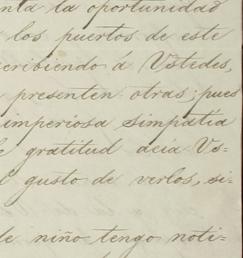 nta la oportunidad
los puertos de este
cribiendo á Ustedes,
presenten otras; pues
imperiosa simpatía
gratitud acia Us-
gusto de verlos, si-
de niño tengo noti-